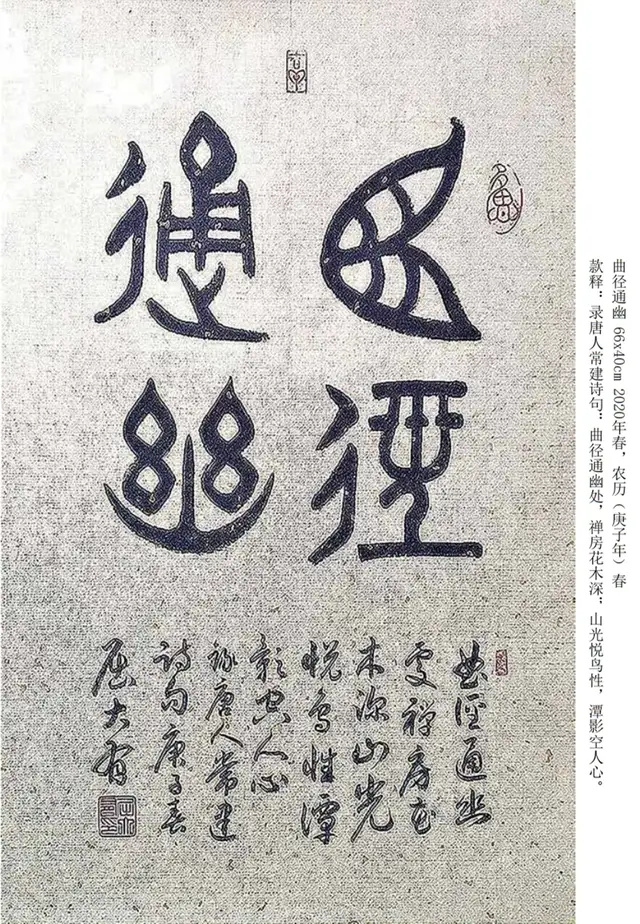 曲径通幽 66x40cm 2020年春，农历（庚子年）春
款释：录唐人常建诗句：曲径通幽处，禅房花木深；山光悦鸟性，潭影空人心。
曲徑
通幽
曲徑通幽
處禪房花
木深山光
悅鳥性潭
影空人心
錄唐人常建
詩句庚子春
屈大有